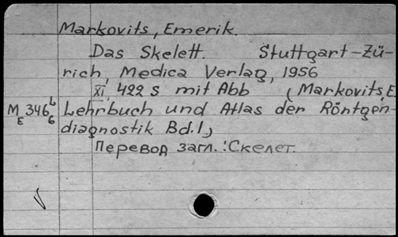 Markovits, Emerik.
Das Skelett. Stuttgart-Zü-
rich, Medica Verlag, 1956
XI, 422 S mit Abb (Markovits, E.
M E 346 L 6 Lehrbuch und Atlas der Röntgen-
diagnostik Bd. 1)
Перевод загл.: Скелет.